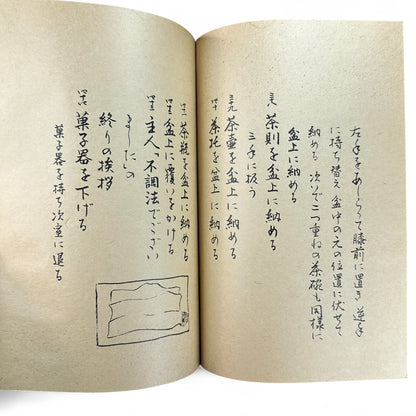 左手をあしらって膝前に置き逆手
に持ち替え盆中の元の位置に伏せて
納める 次いで二つ重ねの茶碗も同様に
盆上に納める
茶則を盆上に納める
三手に扱う
三九 茶壷を盆上に納める
四十 茶托を盆上に納める
茶瓶を盆上に納める
盆上に覆いをかける
主人「不調法でござい
ました」の
終りの挨拶
菓子器を下げる
菓子器を持ち次室に退る